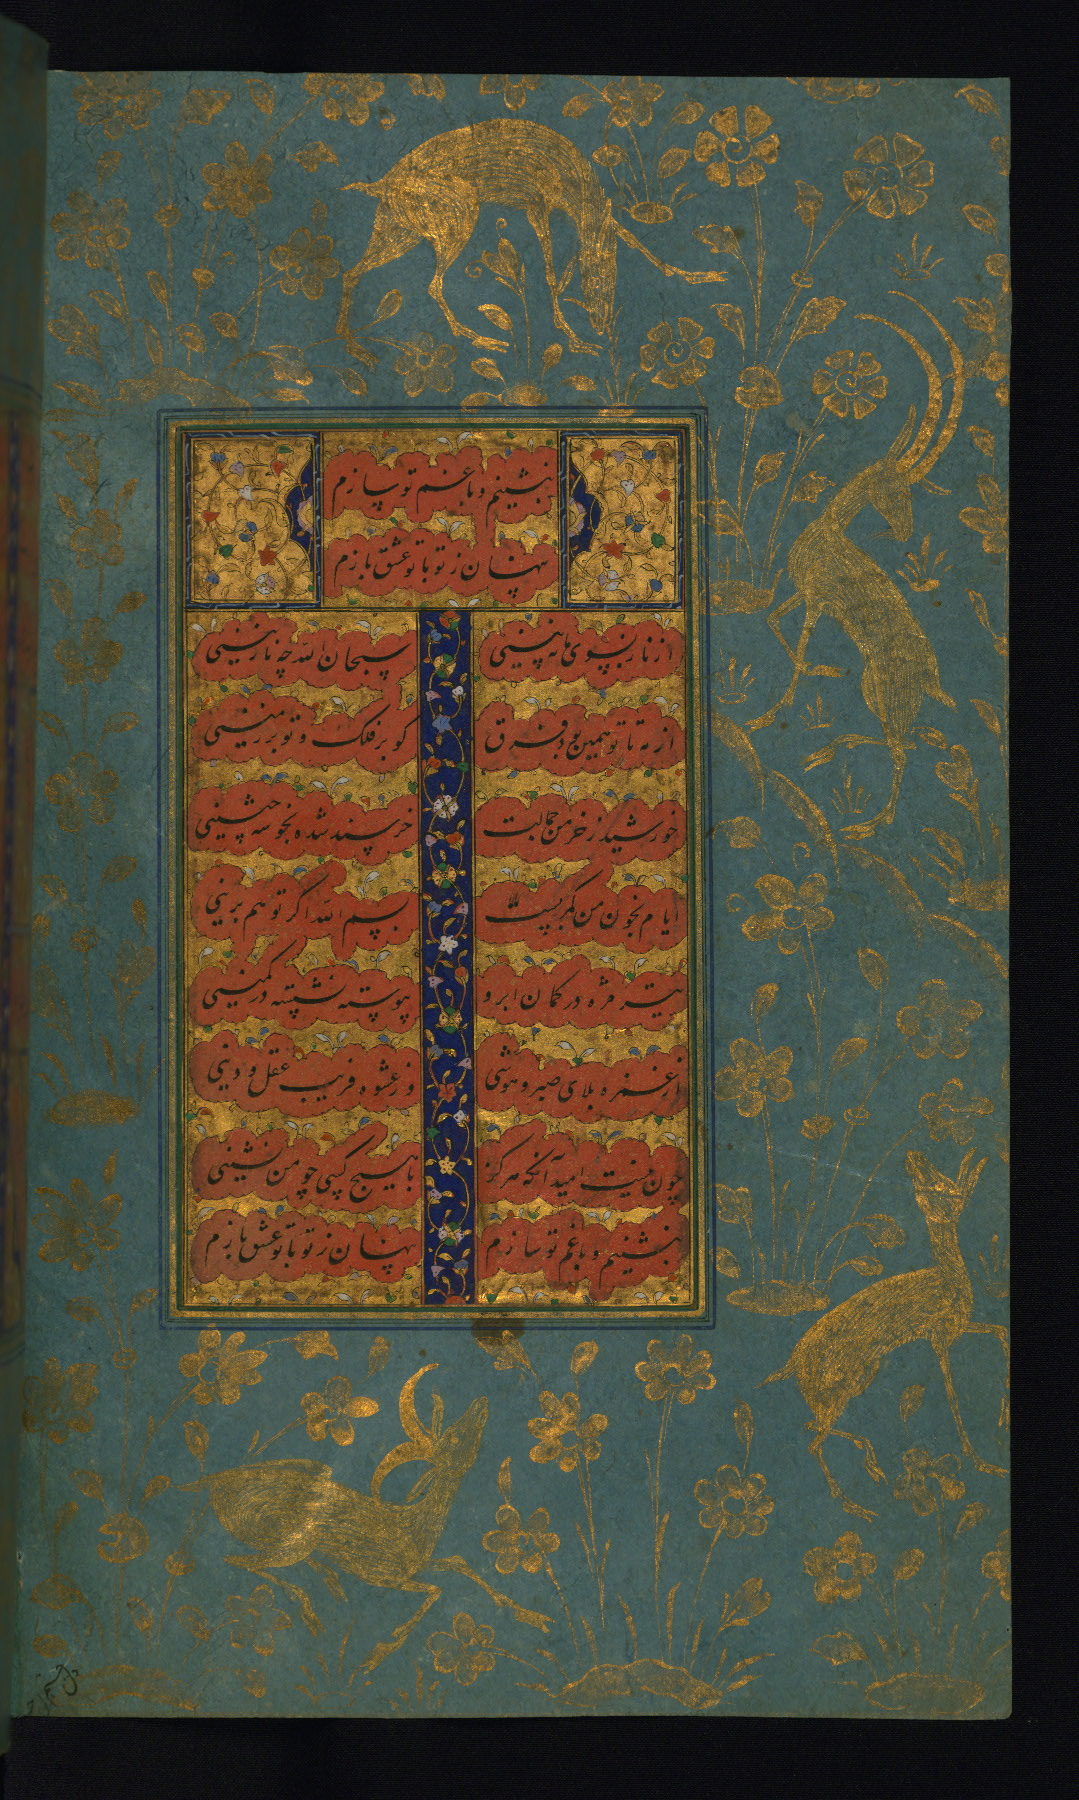 بنشینم و با غم تو سازم
پنهان ز تو با تو عشق بازم
از ناز بسوی ما نه بینی
سبحان الله چه نازنینی
از مه تا تو همین بود فرق
کو بر فلک و تو بر زمینی
خورشید ز خرمن جمالت
خرسند شده بخوشه چینی
ایام بخون من کمر بست
بسم الله اگر تو هم برینی
تیر مژه در کمان ابرو
پیوسته نشسته در کمینی
از غمزه بلای صبر و هوشی
وز عشوه فریب عقل و دینی
چون نیست امید آنکه هرگز
با هیچ کسی چو من نشینی
بنشینم و با غم تو سازم
پنهان ز تو با تو عشق بازم